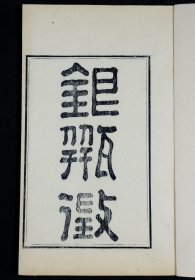 銀瓶徵